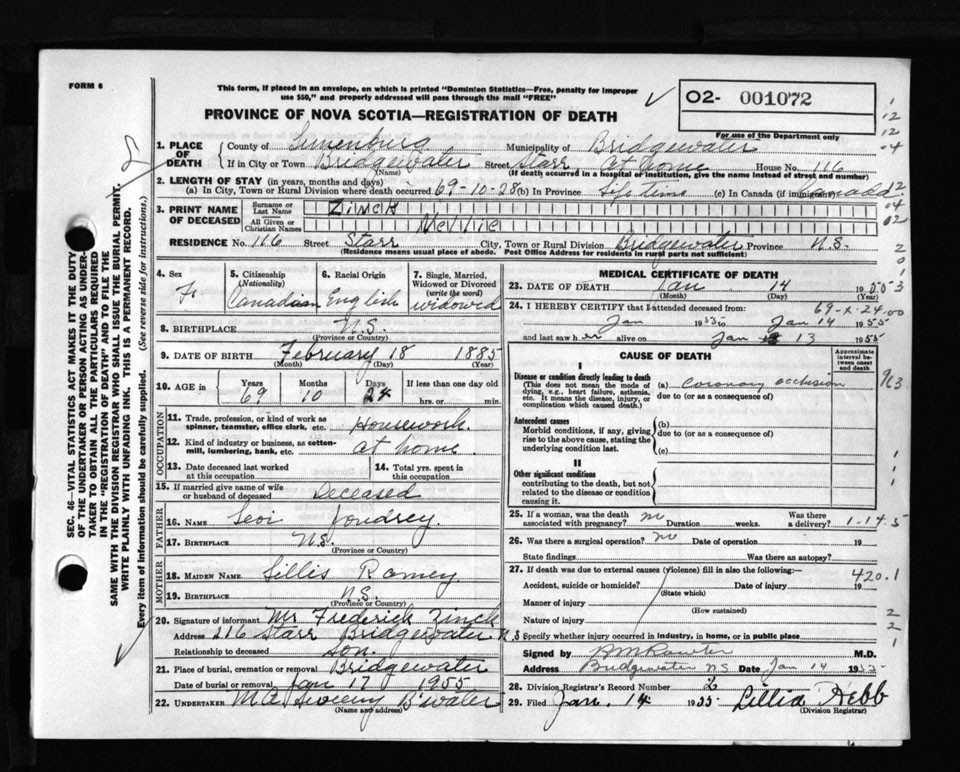 FORM 6
This form, if placed in an envelope, on which is printed "Dominion Statistics—Free, penalty for improper
use $50," and properly addressed will pass through the mail "FREE"
PROVINCE OF NOVA SCOTIA—REGISTRATION OF DEATH
O2- 001072
For use of the Department only
1. PLACE OF DEATH County of Lunenburg Municipality of Bridgewater
If in City or Town Bridgewater Street Starr At home House No. 116
(Name) (If death occurred in a hospital or institution, give the name instead of street and number)
2. LENGTH OF STAY (in years, months and days)
(a) In City, Town or Rural Division where death occurred 69-10-28 (b) In Province Life time (c) In Canada (if immigrant) Canada
3. PRINT NAME OF DECEASED
Surname or Last Name Zinck
All Given or Christian Names Mellie
RESIDENCE No. 166 Street Starr City, Town or Rural Division Bridgewater Province N.S.
(Residence means usual place of abode. Post Office Address for residents in rural parts not sufficient)
4. Sex F.
5. Citizenship (Nationality) Canadian
6. Racial Origin English
7. Single, Married, Widowed or Divorced (write the word) widowed
8. BIRTHPLACE N.S.
(Province or Country)
9. DATE OF BIRTH February 18 1885
(Month) (Day) (Year)
10. AGE in Years 69 Months 10 Days 24 If less than one day old
hrs. or min.
OCCUPATION
11. Trade, profession, or kind of work as
spinner, teamster, office clerk, etc. Housework.
12. Kind of industry or business, as cotton-
mill, lumbering, bank, etc. At home.
13. Date deceased last worked
at this occupation
14. Total yrs. spent in
this occupation
15. If married give name of wife
or husband of deceased Deceased
FATHER
16. NAME Levi Joudrey.
17. BIRTHPLACE N.S.
(Province or Country)
MOTHER
18. MAIDEN NAME Lillis Ramey
19. BIRTHPLACE N.S.
(Province or Country)
20. Signature of informant Mr Frederick Zinck
Address 216 Starr Bridgewater N.S
Relationship to deceased son.
21. Place of burial, cremation or removal Bridgewater
Date of burial or removal Jan 17 1955
22. UNDERTAKER M.A. Sweeny B'water
(Name and address)
MEDICAL CERTIFICATE OF DEATH
23. DATE OF DEATH Jan 14 1955
(Month) (Day) (Year)
24. I HEREBY CERTIFY that I attended deceased from:
69-X-24.00
Jan 1955 to Jan 14 1955
and last saw her alive on Jan 13 1955
CAUSE OF DEATH
Approximate interval between onset and death
I
Disease or condition directly leading to death
(This does not mean the mode of
dying, e.g., heart failure, asthenia,
etc. It means the disease, injury, or
complication which caused death.)
(a) coronary occlusion
due to (or as a consequence of)
Antecedent causes
Morbid conditions, if any, giving
rise to the above cause, stating the
underlying condition last.
(b)
due to (or as a consequence of)
(c)
II
Other significant conditions
contributing to the death, but not
related to the disease or condition
causing it.
25. If a woman, was the death
associated with pregnancy? no Duration weeks. Was there
a delivery? 1-14.5
26. Was there a surgical operation? no Date of operation 19
State findings Was there an autopsy?
27. If death was due to external causes (violence) fill in also the following:—
420.1
Accident, suicide or homicide? Date of injury 19
(State which)
Manner of injury
(How sustained)
Nature of injury
Specify whether injury occurred in industry, in home, or in public place
Signed by M.D.
Address Bridgewater NS Date Jan 14 1955
28. Division Registrar's Record Number 2
29. Filed Jan. 14 1955 Lillia Hebb
(Division Registrar)
SEC. 46—VITAL STATISTICS ACT MAKES IT THE DUTY
OF THE UNDERTAKER OR PERSON ACTING AS UNDER-
TAKER TO OBTAIN ALL THE PARTICULARS REQUIRED
IN THE "REGISTRATION OF DEATH" AND TO FILE THE
SAME WITH THE DIVISION REGISTRAR WHO SHALL ISSUE THE BURIAL PERMIT.
WRITE PLAINLY WITH UNFADING INK. THIS IS A PERMANENT RECORD.
Every item of information should be carefully supplied. (See reverse side for instructions.)